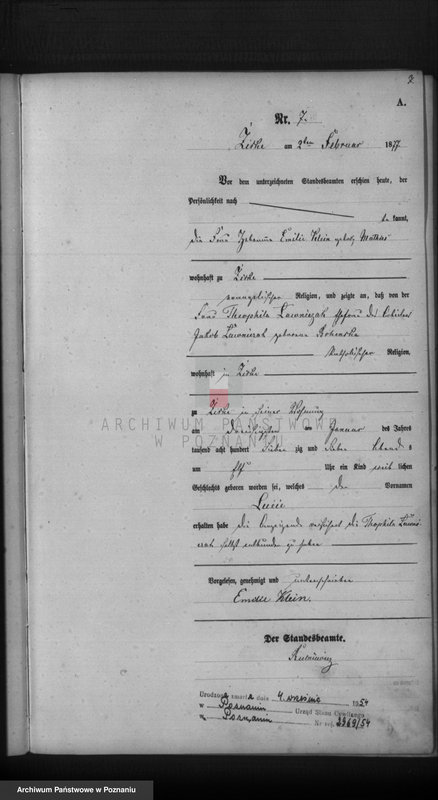 A.
Nr. 7.
Zirke am 2ten Februar 1877
Vor dem unterzeichneten Standesbeamten erschien heute, der
Persönlichkeit nach
kannt,
die Frau Hebamme Emilie Klein geborene
wohnhaft zu Zirke
evangelischer Religion, und zeigte an, daß von der
Frau Theophila Ehefrau des
Jakob geborene
katholischer Religion,
wohnhaft in Zirke
zu Zirke in seiner Wohnung
am dreißigsten Januar des Jahres
tausend acht hundert sieben zig und sieben Abends
um elf Uhr ein Kind weiblichen
Geschlechts geboren worden sei, welches den Vornamen
Lucie
erhalten habe die Anzeigende versichert die
selbst entbunden zu haben
Vorgelesen, genehmigt und unterschrieben
Emilie Klein.
Der Standesbeamte.
zmarła dnia 4 września 1954
w Poznaniu Urząd Stanu Cywilnego
w Poznaniu Nr rej.
ARCHIWUM PAŃSTWOWE
W POZNANIU
Archiwum Państwowe w Poznaniu